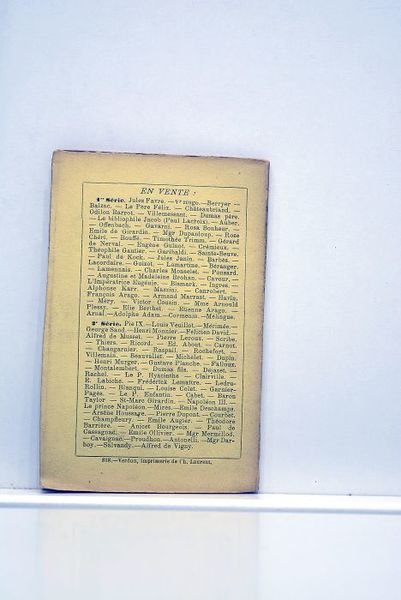 EN VENTE :
1re Série. Jules Favre. — Vr Hugo. — Berryer —
Balzac. — Le Père Félix. — Châteaubriand. —
Odilon Barrot. — Villemessant. — Dumas père.
— Le bibliophile Jacob (Paul Lacroix). — Auber.
— Offenbach. — Gavarni. — Rosa Bonheur. —
Emile de Girardin. — Mgr Dupanloup. — Rose
Chéri. — Bouffé. — Timothée Trimm. — Gérard
de Nerval. — Eugène Guinot. — Crémieux. —
Théophile Gautier. — Garibaldi. — Sainte-Beuve.
— Paul de Kock. — Jules Janin. — Barbès. —
Lacordaire. — Guizot. — Lamartine. — Béranger.
— Lamennais. — Charles Monselet. — Ponsard.
— Augustine et Madeleine Brohan. — Cavour. —
L'Impératrice Eugénie. — Bismark. — Ingres. —
Alphonse Karr. — Mazzini. — Canrobert. —
François Arago. — Armand Marrast. — Havin.
— Méry. — Victor Cousin. — Mme Arnould
Plessy. — Elie Berthet. — Etienne Arago. —
Arnal. — Adolphe Adam. — Cormenin. — Mélingue.
2e Série. Pie IX. — Louis Veuillot. — Mérimée. —
George Sand. — Henri Monnier. — Félicien David. —
Alfred de Musset. — Pierre Leroux. — Scribe. —
Thiers. — Ricord. — Ed. About. — Carnot.
— Changarnier. — Raspail. — Rochefort. —
Villemain. — Beauvallet. — Michelet. — Dupin.
— Henri Murger. — Gustave Planche. — Falloux.
— Montalembert. — Dumas fils. — Déjazet. —
Rachel. — Le P. Hyacinthe. — Clairville. —
E. Labiche. — Frédérick Lemaître. — Ledru-
Rollin. — Blanqui. — Louise Colet. — Garnier-
Pagès. — Le P. Enfantin. — Cabet. — Baron
Taylor — St-Marc Girardin. — Napoléon III. —
Le prince Napoléon — Mirès. — Emile Deschamps.
— Arsène Houssaye. — Pierre Dupont. — Courbet.
— Champfleury. — Emile Augier. — Théodore
Barrière. — Anicet Bourgeois. — Paul de
Cassagnac. — Emile Ollivier. — Mgr Mermillod.
— Cavaignac. — Proudhon. — Antonelli. — Mgr Dar-
boy. — Salvandy. — Alfred de Vigny.
818. — Verdun, imprimerie de Ch. Laurent.